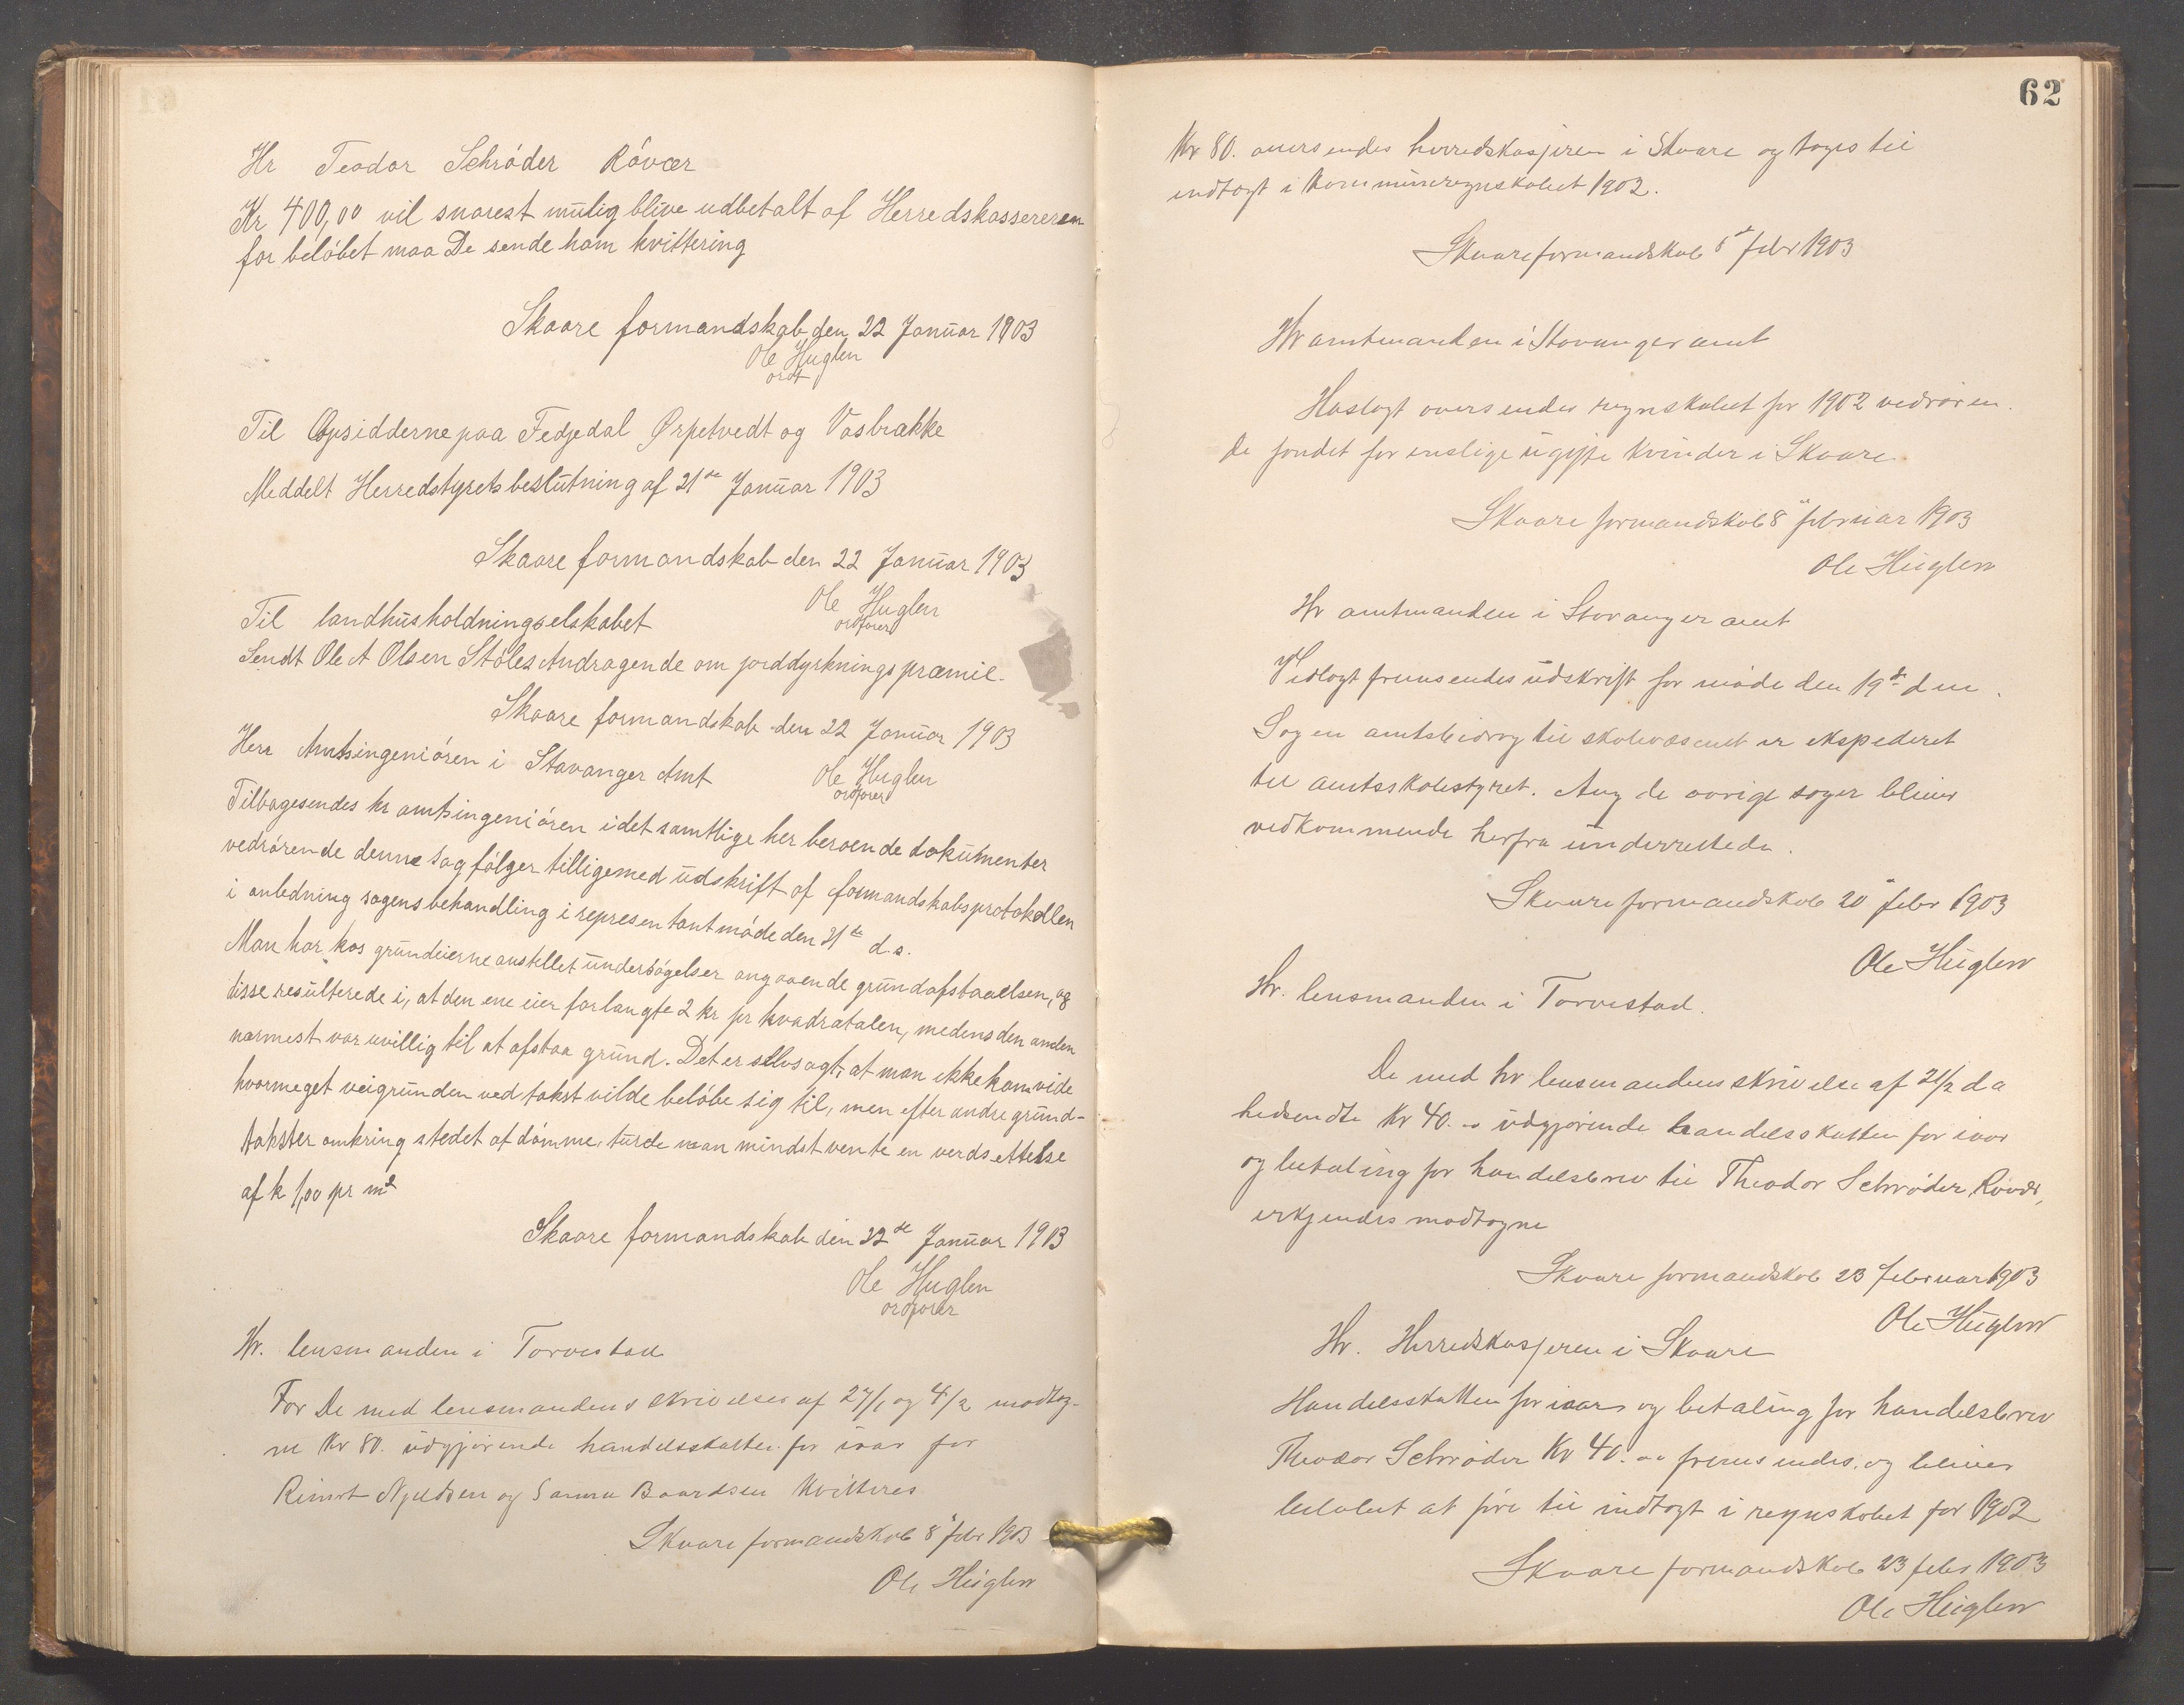 Hr Teodor Schröder Róvær
Kr 400,00 vil snarest mulig blive udbetalt af Herredskassereren
for belóbet maa De sende ham kvittering
Skaare formandskab den 22 Januar 1903
Ole Huglen
ordf
Til Opsidderne paa Fedjedal Ørpetvedt og Vasbrække
Meddelt Herredstyrets beslutning af 21de Januar 1903
Skaare formandskab den 22 Januar 1903
Ole Huglen
ordfórer
Til landhusholdningselskabet
Sendt Ole A Olsen Stóles Andragende om jorddyrknings præmie.
Skaare formandskab den 22 Januar 1903
Ole Huglen
ordfórer
Herr Amtsingenióren i Stavanger Amt
Tilbagesendes hr amtsingenióren idet samtlige her beroende dokumenter
vedrórende denne sag fólger tilligemed udskrift af formandskabsprotokollen
i anledning sagens behandling i representantmóde den 21de d.s.
Man har hos grundeierne anstillet undersógelser angaaende grundafstaaelsen, og
disse resulterede i, at den ene eier forlangte 2 kr pr kvadratalen, medens den anden
nærmest var uvillig til at afstaa grund. Det er selvsagt, at man ikke kan vide
hvormeget veigrunden ved takst vilde belóbe sig til, men efter andre grund-
takster omkring stedet at dómme, turde man mindst vente en verdsettelse
af k 1,00 pr m2
Skaare formandskab den 22de Januar 1903
Ole Huglen
ordfórer
Hr. lensmanden i Torvestad
For De med lensmandens skrivelser af 27/1 og 4/2 modtag-
ne Kr 80. udgjórende handelsskatten for ivar for
Rimert Njeldsen og Samu Baardsen kvitteres
Skaare formandskab 8" febr 1903
Ole Huglen
62
Kr 80. oversendes herredskasjeren i Skaare og tages til
indtægt i Kommuneregnskabet 1902.
Skaare formandskab febr 1903
Hr amtmanden i Stavanger amt
Hoslagt oversendes regnskabet for 1902 vedróren-
de fondet for enslige ugifte kvinder i Skaare
Skaare formandskab 8" februar 1903
Ole Huglen
Hr amtmanden i Stavanger amt
Vedlagt fremsendes udskrift for móde den 19de dm.
Sagen amtsbidrag til skolevæsenet er ekspederet
til amtsskolestyret. Ang de óvrige sager blever
vedkommende herfra underrettede.
Skaare formandskab 20" febr 1903
Ole Huglen
Hr. lensmanden i Torvestad.
De med hr lensmandens skrivelse af 21/2 da
hidsendte Kr 40. udgjórende handelsskatten for ivar
og betaling for handelsbrev til Theodor Schróder Róvær,
erkjendes modtagne
Skaare formandskab 23 februar 1903
Ole Huglen
Hr. Herredskasjeren i Skaare
Handelsskatten for ivar og betaling for handelsbrev
Theodor Schróder Kr 40. fremsendes, og blever
belóbet at fóre til indtægt i regnskabet for 1902
Skaare formandskab 23 febr 1903
Ole Huglen